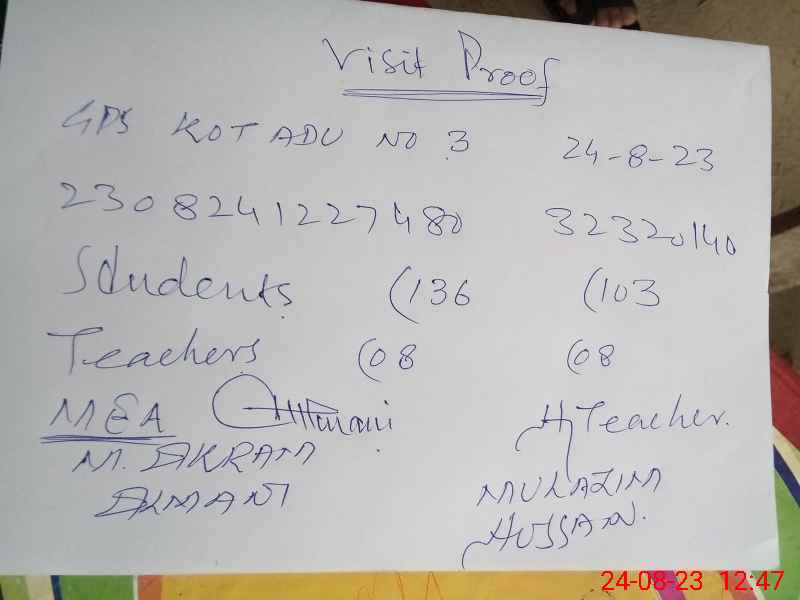 Visit Proof
GPS KOT ADU NO 3 24-8-23
2308241227480 32320140
Students (136 (103
Teachers (08 (08
MEA H Teacher.
M. AKRAM MULAZIM
HUSSAIN.
24-08-23 12:47